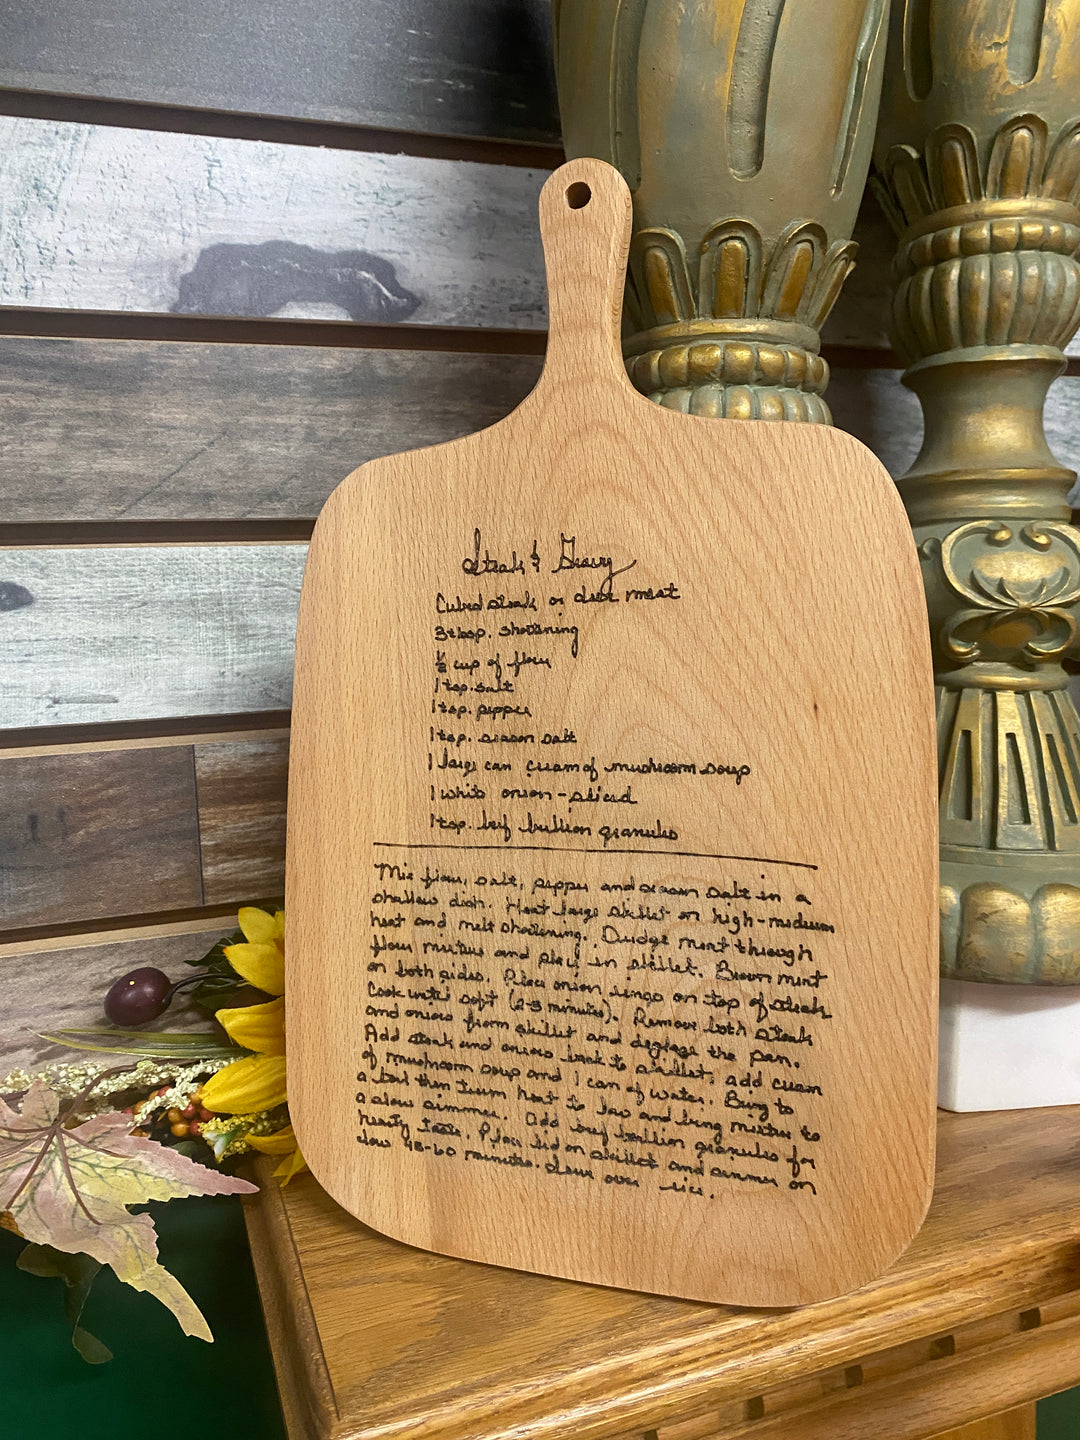 Steak & Gravy
Cubed steak or deer meat
3 tbsp. shortening
½ cup of flour
1 tsp. salt
1 tsp. pepper
1 tsp. season salt
1 large can cream of mushroom soup
1 white onion - sliced
1 tsp. beef bullion granules
Mix flour, salt, pepper and season salt in a
shallow dish. Heat large skillet on high-medium
heat and melt shortening. Dredge meat through
flour mixture and place in skillet. Brown meat
on both sides. Place onion rings on top of steak
Cook until soft (2-3 minutes). Remove both steak
and onions from skillet and deglaze the pan.
Add steak and onions back to skillet, add cream
of mushroom soup and 1 can of water. Bring to
a boil then turn heat to low and bring mixture to
a slow simmer. Add beef bullion granules for
hearty taste. Place lid on skillet and simmer on
low 45-60 minutes. Serve over rice.